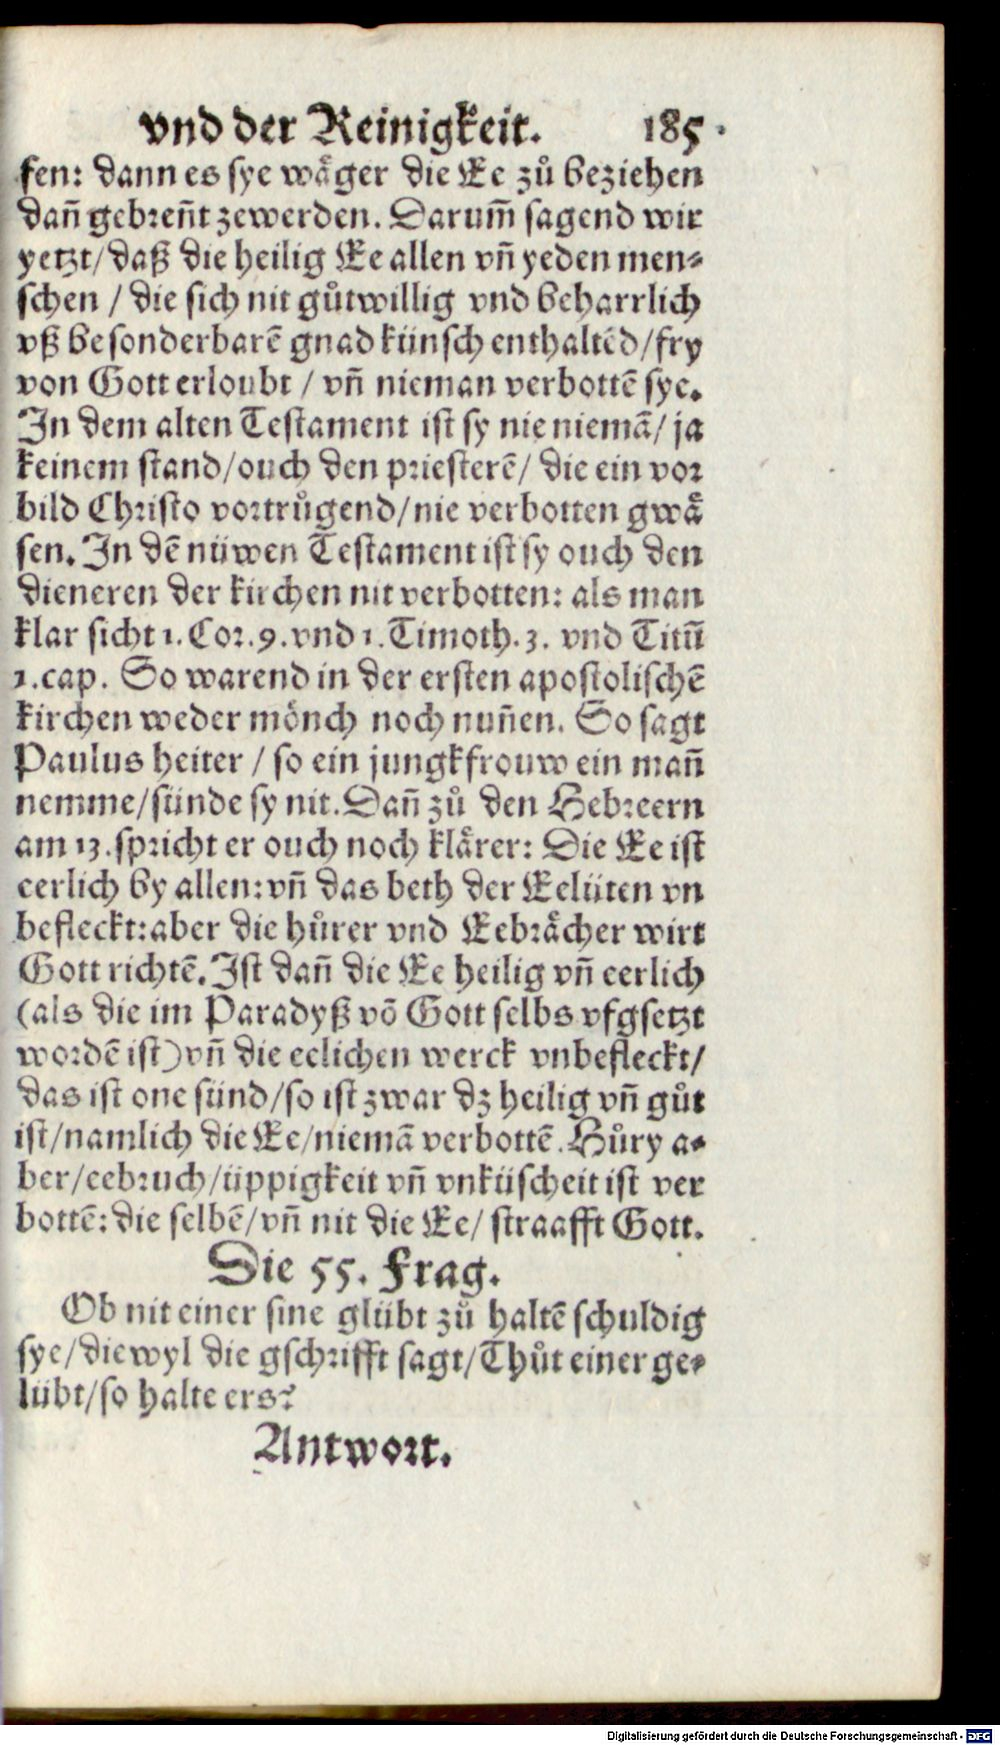 vnd der Reinigkeit. 185.
fen: dann es sye wåger die Ee zů beziehen
dañ gebreñt zewerden. Darum̃ sagend wir
yetzt/ daß die heilig Ee allen vñ yeden men⸗
schen / die sich nit gůtwillig vnd beharrlich
vß besonderbarẽ gnad künsch enthaltẽd/ fry
von Gott erloubt / vñ nieman verbottẽ sye.
In dem alten Testament ist sy nie niemã/ ja
keinem stand/ ouch den priesterẽ/ die ein vor
bild Christo vortrůgend/ nie verbotten gwå
sen. In dẽ nüwen Testament ist sy ouch den
dieneren der kirchen nit verbotten: als man
klar sicht 1. Cor. 9. vnd 1. Timoth. 3. vnd Titũ
1. cap. So warend in der ersten apostolischẽ
kirchen weder mönch noch nuñen. So sagt
Paulus heiter / so ein jungkfrouw ein mañ
nemme/ sünde sy nit. Dañ zů den Hebreern
am 13. spricht er ouch noch klårer: Die Ee ist
eerlich by allen: vñ das beth der Eelüten vn
befleckt: aber die hůrer vnd Eebråcher wirt
Gott richtẽ. Ist dañ die Ee heilig vñ eerlich
(als die im Paradyß võ Gott selbs vfgsetzt
wordẽ ist) vñ die eelichen werck vnbefleckt/
das ist one sünd/ so ist zwar dz heilig vñ gůt
ist/ namlich die Ee/ niemã verbottẽ. Hůry a⸗
ber/ eebruch/ üppigkeit vñ vnküscheit ist ver
bottẽ: die selbẽ/ vñ nit die Ee/ straafft Gott.
Die 55. Frag.
Ob nit einer sine glübt zů haltẽ schuldig
sye/ diewyl die gschrifft sagt/ Thůt einer ge⸗
lübt/ so halte ers?
Antwort.
Digitalisierung gefördert durch die Deutsche Forschungsgemeinschaft - DFG